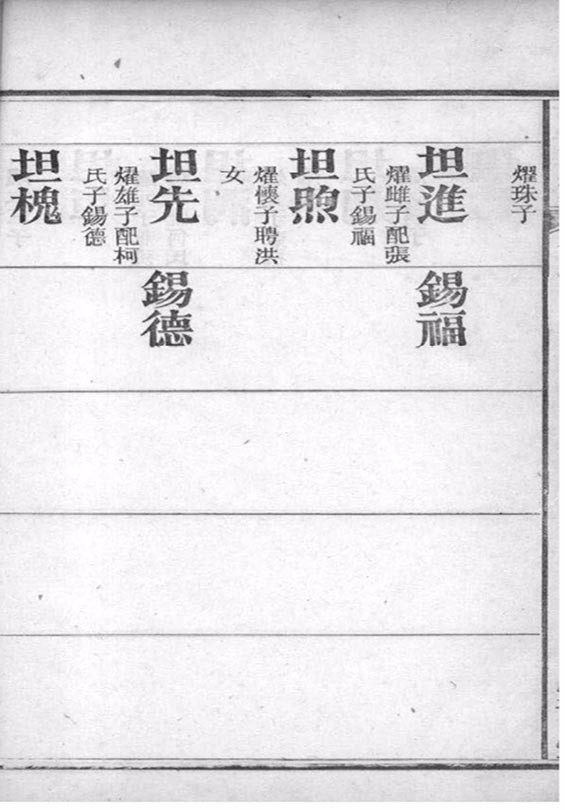 燿珠子
坦進
燿雌子配張
氏子錫福
錫福
坦煦
燿懷子聘洪
女
坦先
燿雄子配柯
氏子錫德
錫德
坦槐